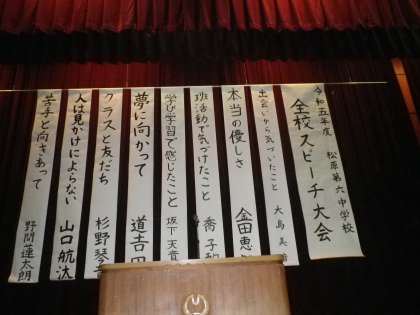 令和五年度 松原第六中学校
全校スピーチ大会
出会いから気づいたこと 大島
本当の優しさ 金田恵
班活動で気づけたこと 香子
学び学習で感じたこと 坂下天音
夢に向かって 道吉田
クラスと友だち 杉野琴
人は見かけによらない 山口航汰
苦手と向きあって 野間蓮太朗